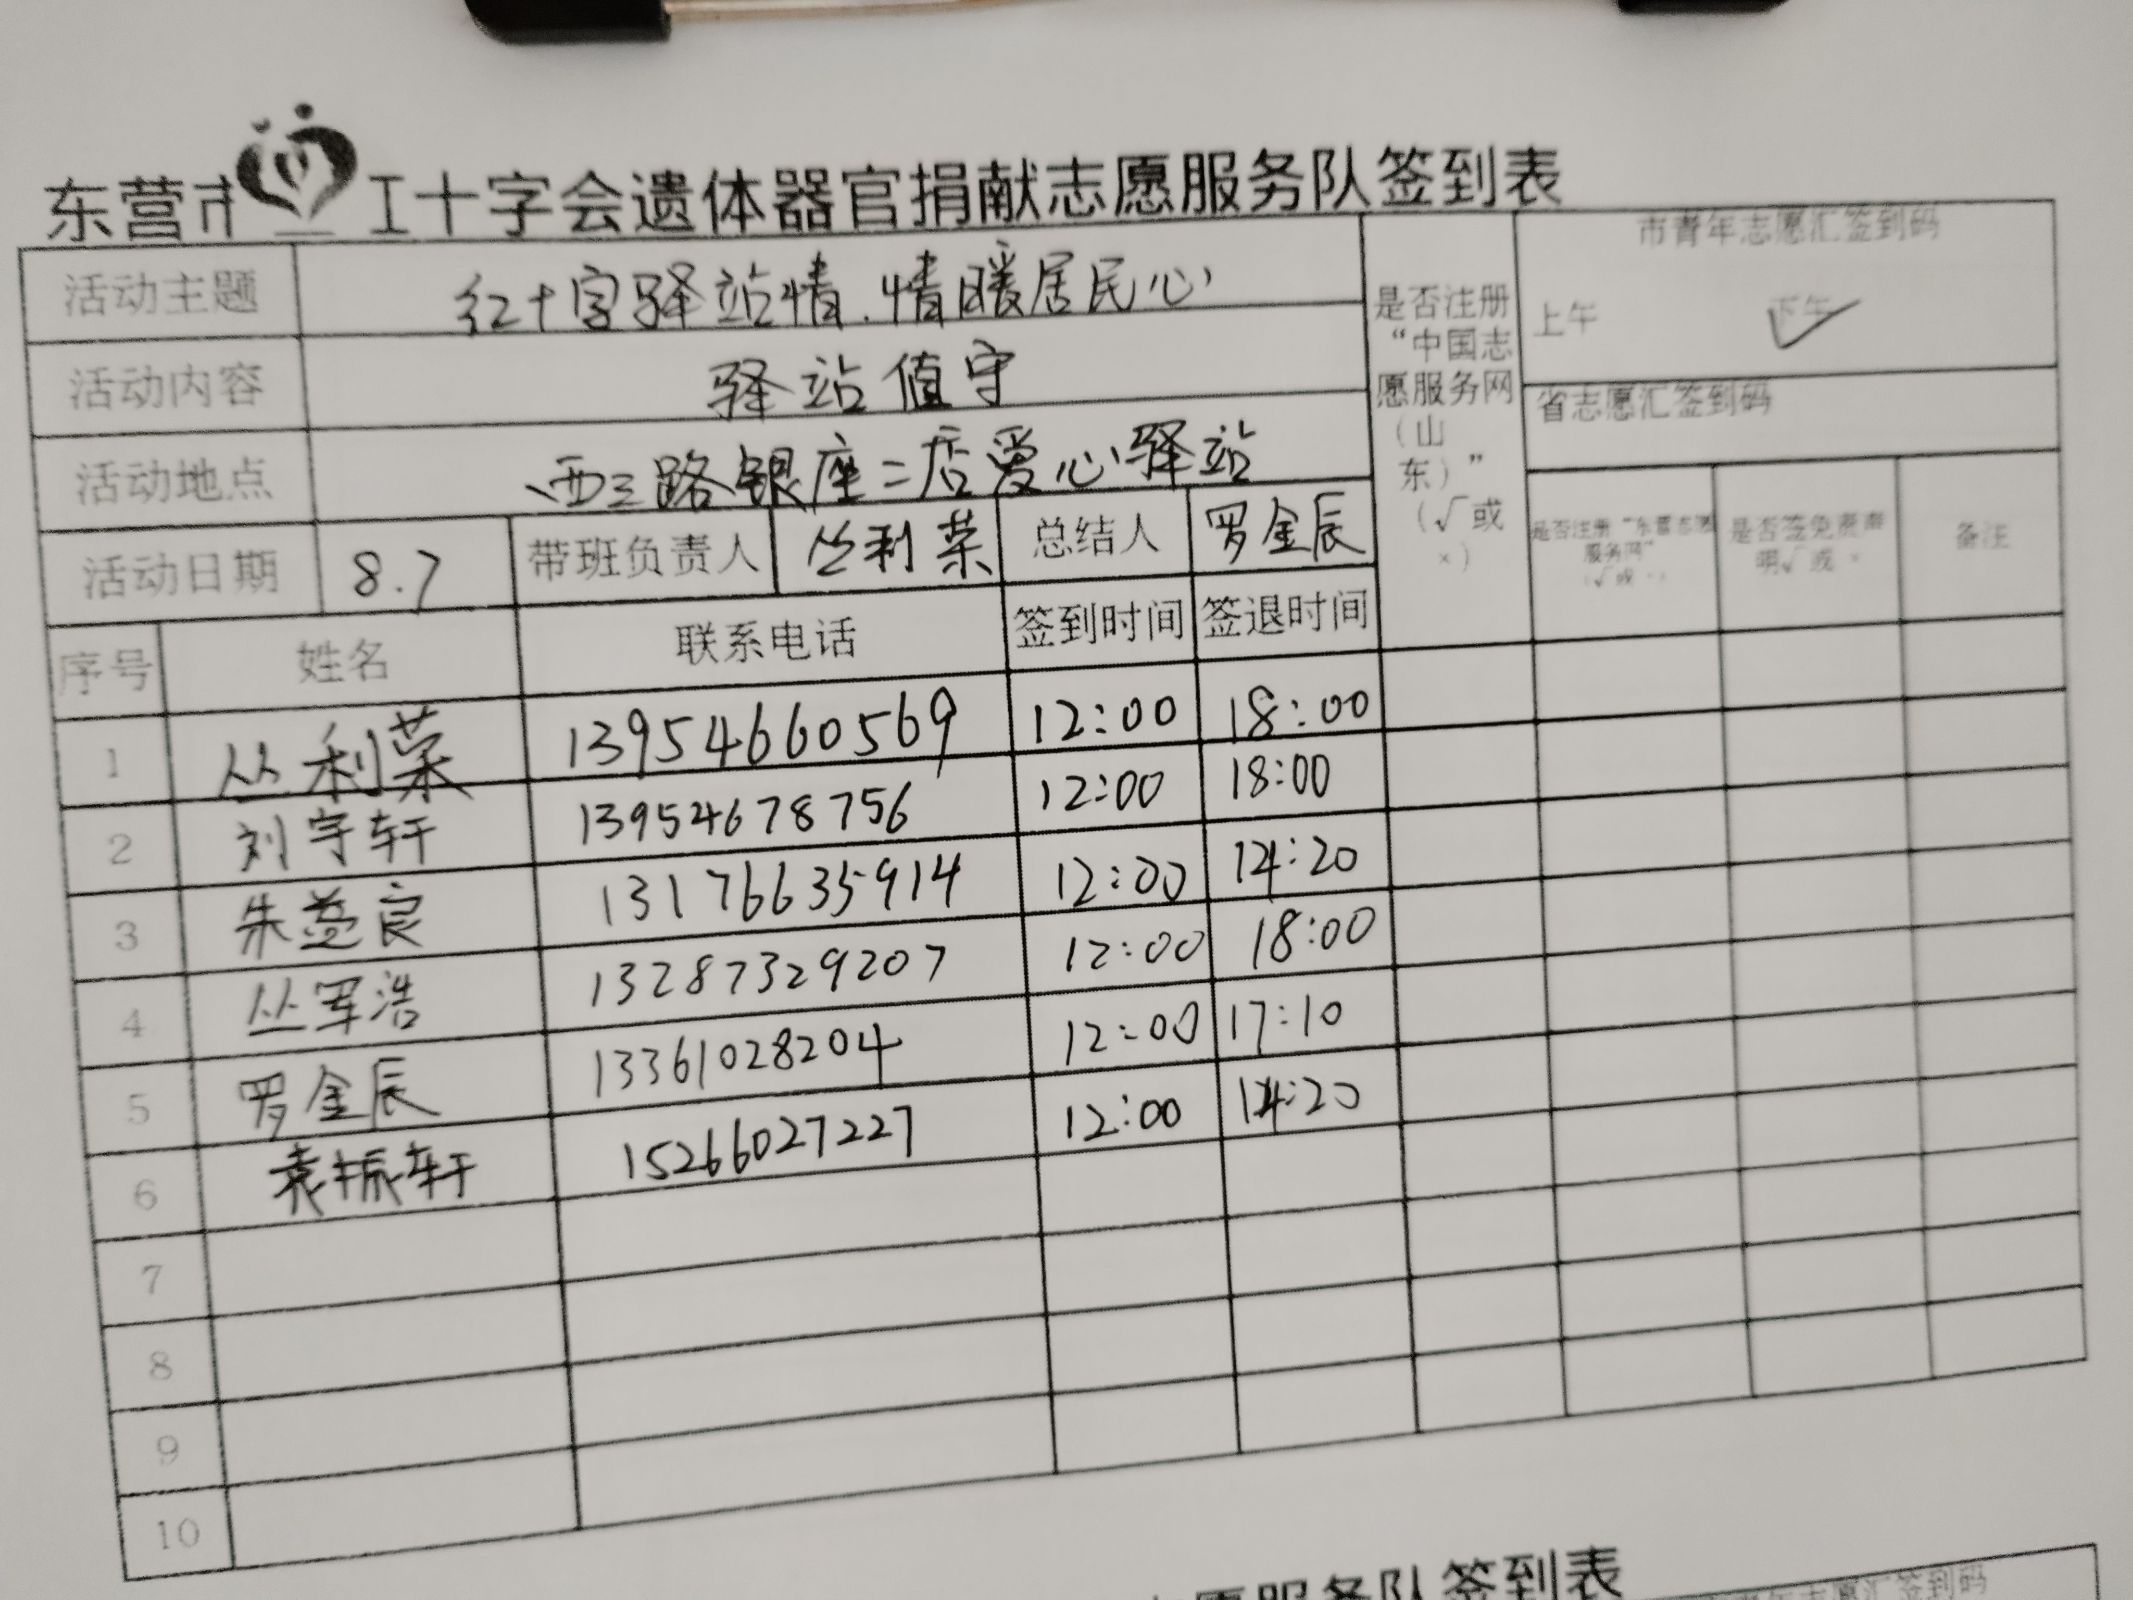 东营市红十字会遗体器官捐献志愿服务队签到表
活动主题 红十字驿站情.情暖居民心
活动内容 驿站值守
活动地点 西三路银座二店爱心驿站
活动日期 8.7 带班负责人 丛利荣 总结人 罗金辰
是否注册
“中国志
愿服务网
（山
东）”
（√或
×）
市青年志愿汇签到码
上午 下午 ✓
省志愿汇签到码
是否注册“东营志愿
服务网”
（√或×）
是否签免责声
明√或×
备注
序号 姓名 联系电话 签到时间 签退时间
1 丛利荣 13954660569 12:00 18:00
2 刘宇轩 13954678756 12:00 18:00
3 朱蔓良 13176635914 12:00 14:20
4 丛军浩 13287329207 12:00 18:00
5 罗金辰 13361028204 12:00 17:10
6 袁振轩 15266027227 12:00 14:20
7
8
9
10
志愿服务队签到表
市青年志愿汇签到码